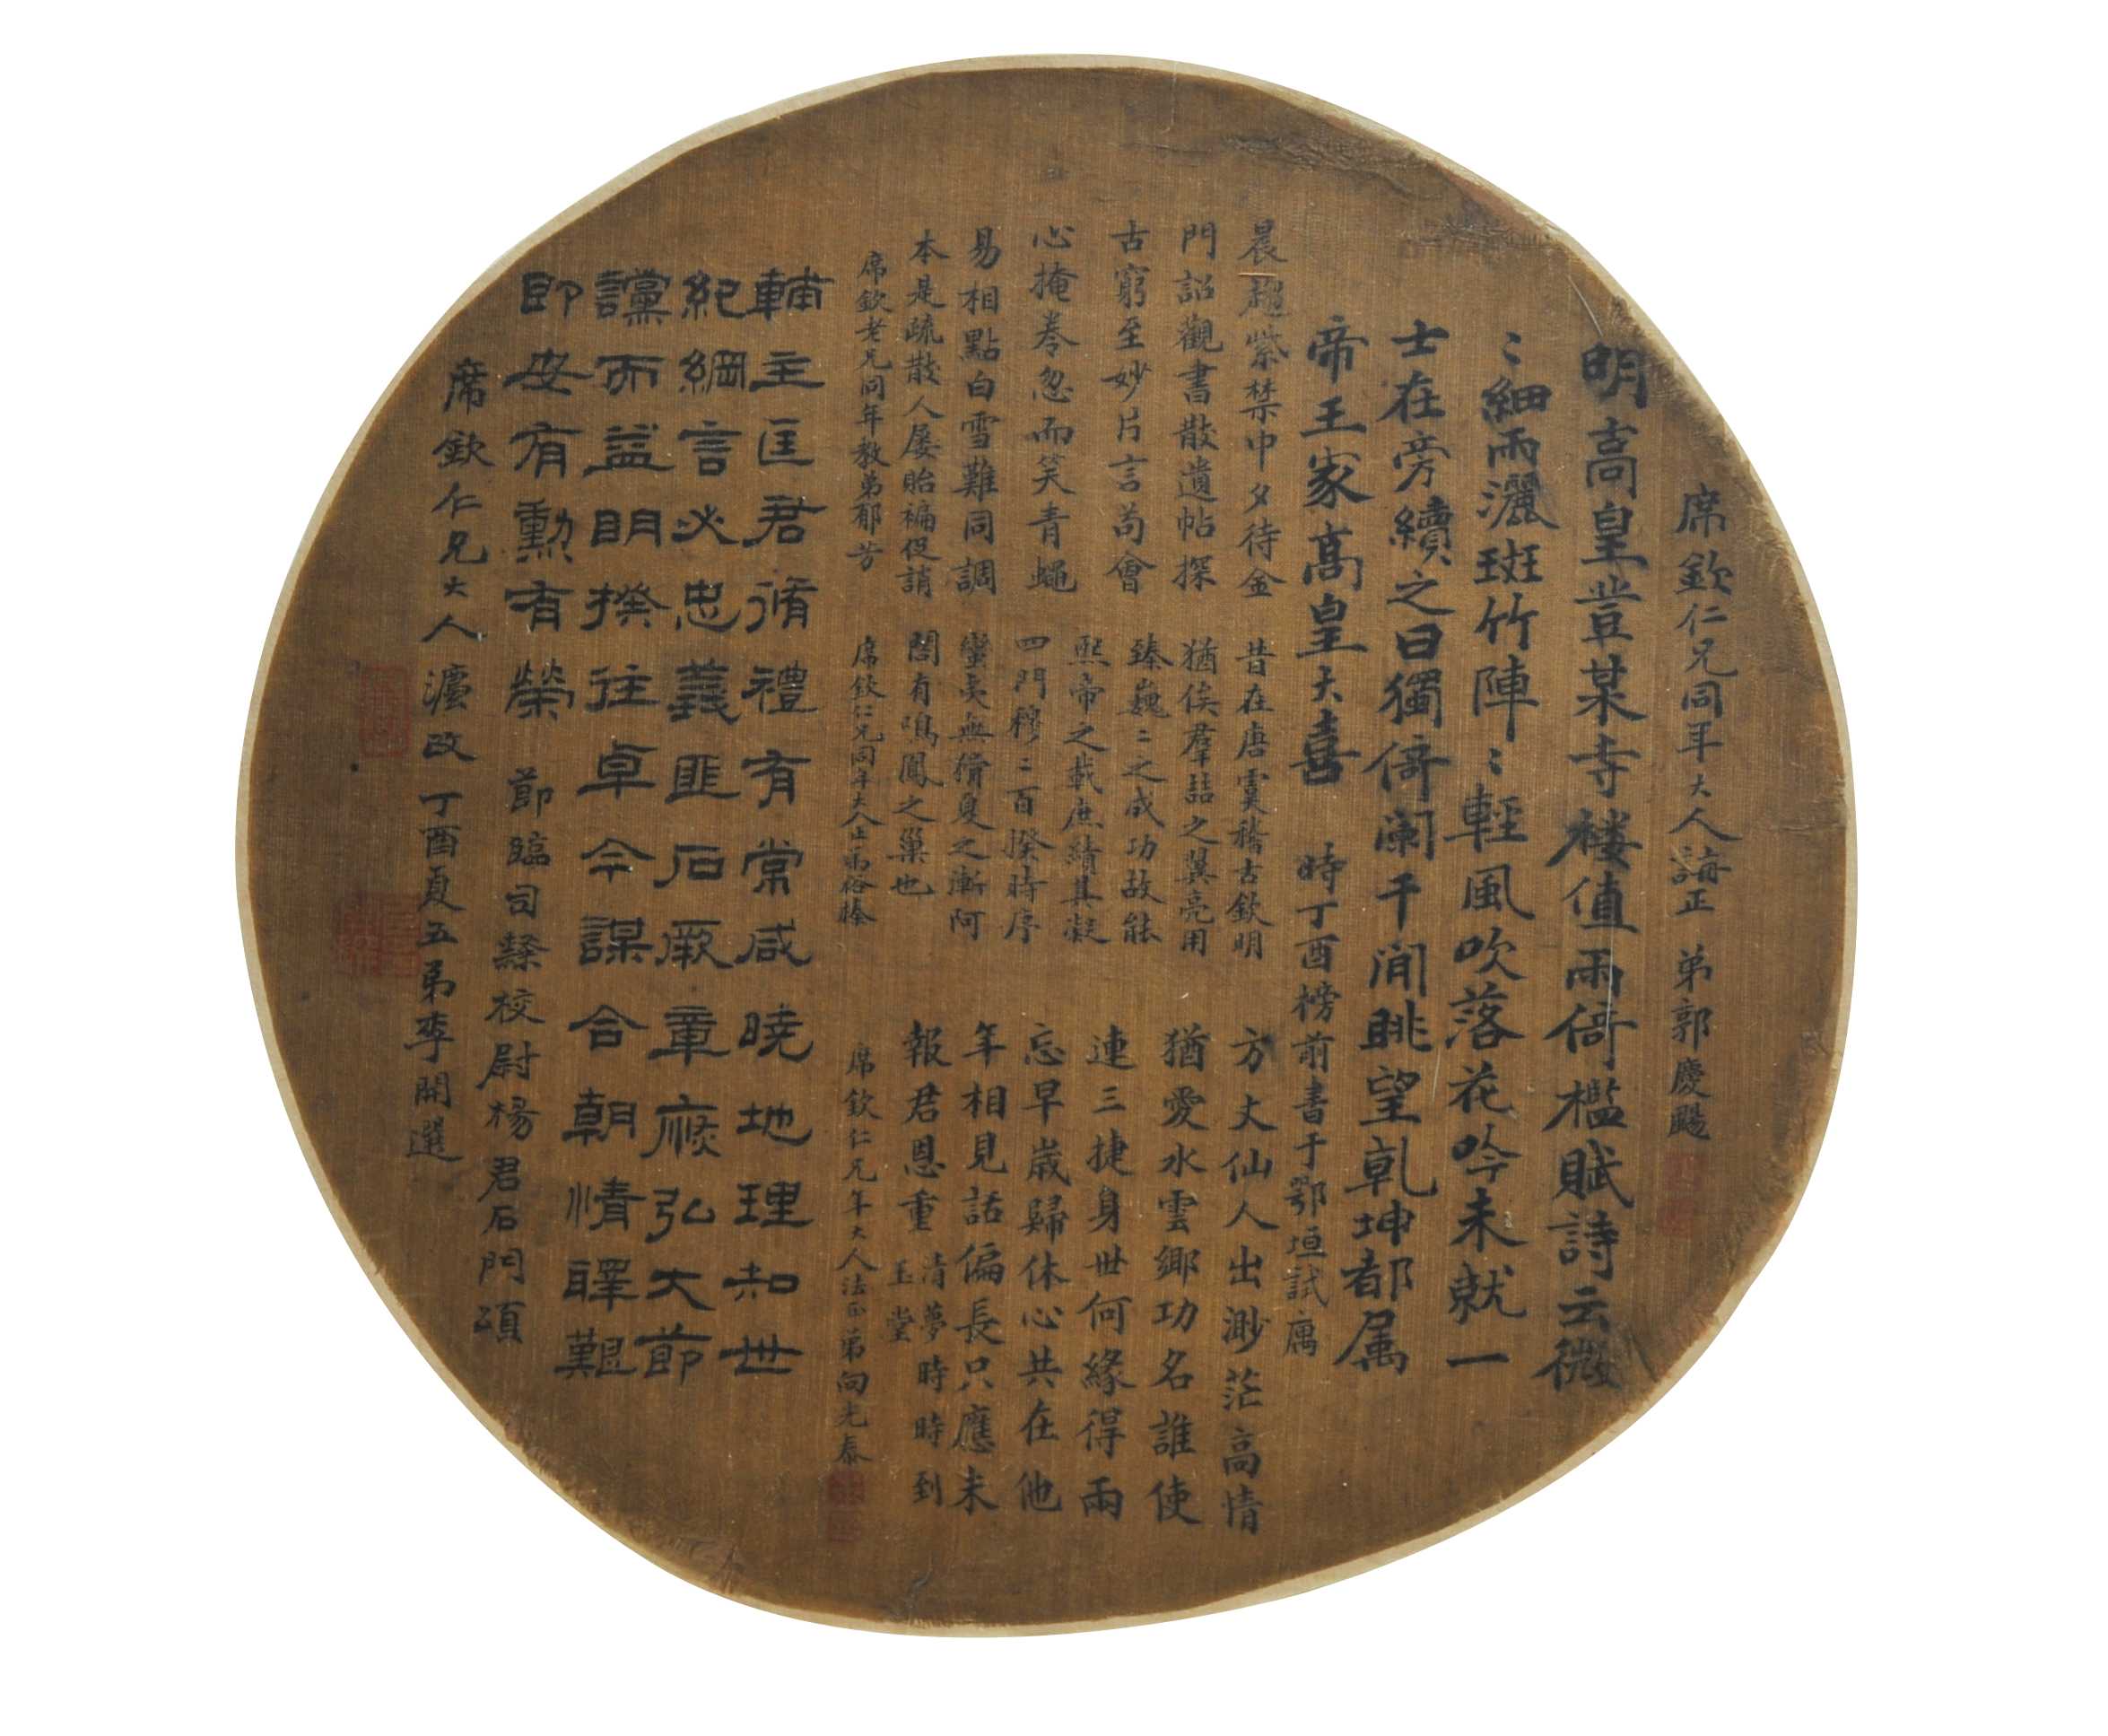 明高皇登某寺楼值雨倚檻賦詩云微
〻細雨灑斑竹陣〻輕風吹落花吟未就一
士在旁續之曰獨倚闌干閒眺望乾坤都属
帝王家高皇大喜
時丁酉榜前書于鄂垣試寓
席欽仁兄同年大人誨正 弟郭慶颺
晨趨紫禁中夕待金
門詔觀書散遺帖探
古窮至妙片言苟會
心掩卷忽而笑青蠅
易相點白雪難同調
本是疏散人屡貽褊促誚
席欽老兄同年教弟郁芳
昔在唐虞稽古欽明
猶俟羣喆之翼亮用
臻巍〻之成功故能
熙帝之載庶績其凝
四門穆〻百揆時序
蠻夷無猾夏之漸阿
閣有鳴鳳之巢也
席欽仁兄同年大人正
方丈仙人出渺茫高情
猶愛水雲鄉功名誰使
連三捷身世何緣得兩
忘早歲歸休心共在他
年相見話偏長只應未
報君恩重清夢時時到
玉堂
席欽仁兄年大人法正弟向光泰
輔主匡君循禮有常咸曉地理知世
紀綱言必忠義匪石厥章廠弘大節
讜而益明揆往卓今謀合朝情醳艱
即安有勲有榮 節臨司隸校尉楊君石門頌
席欽仁兄大人濾政丁酉夏五弟李開選